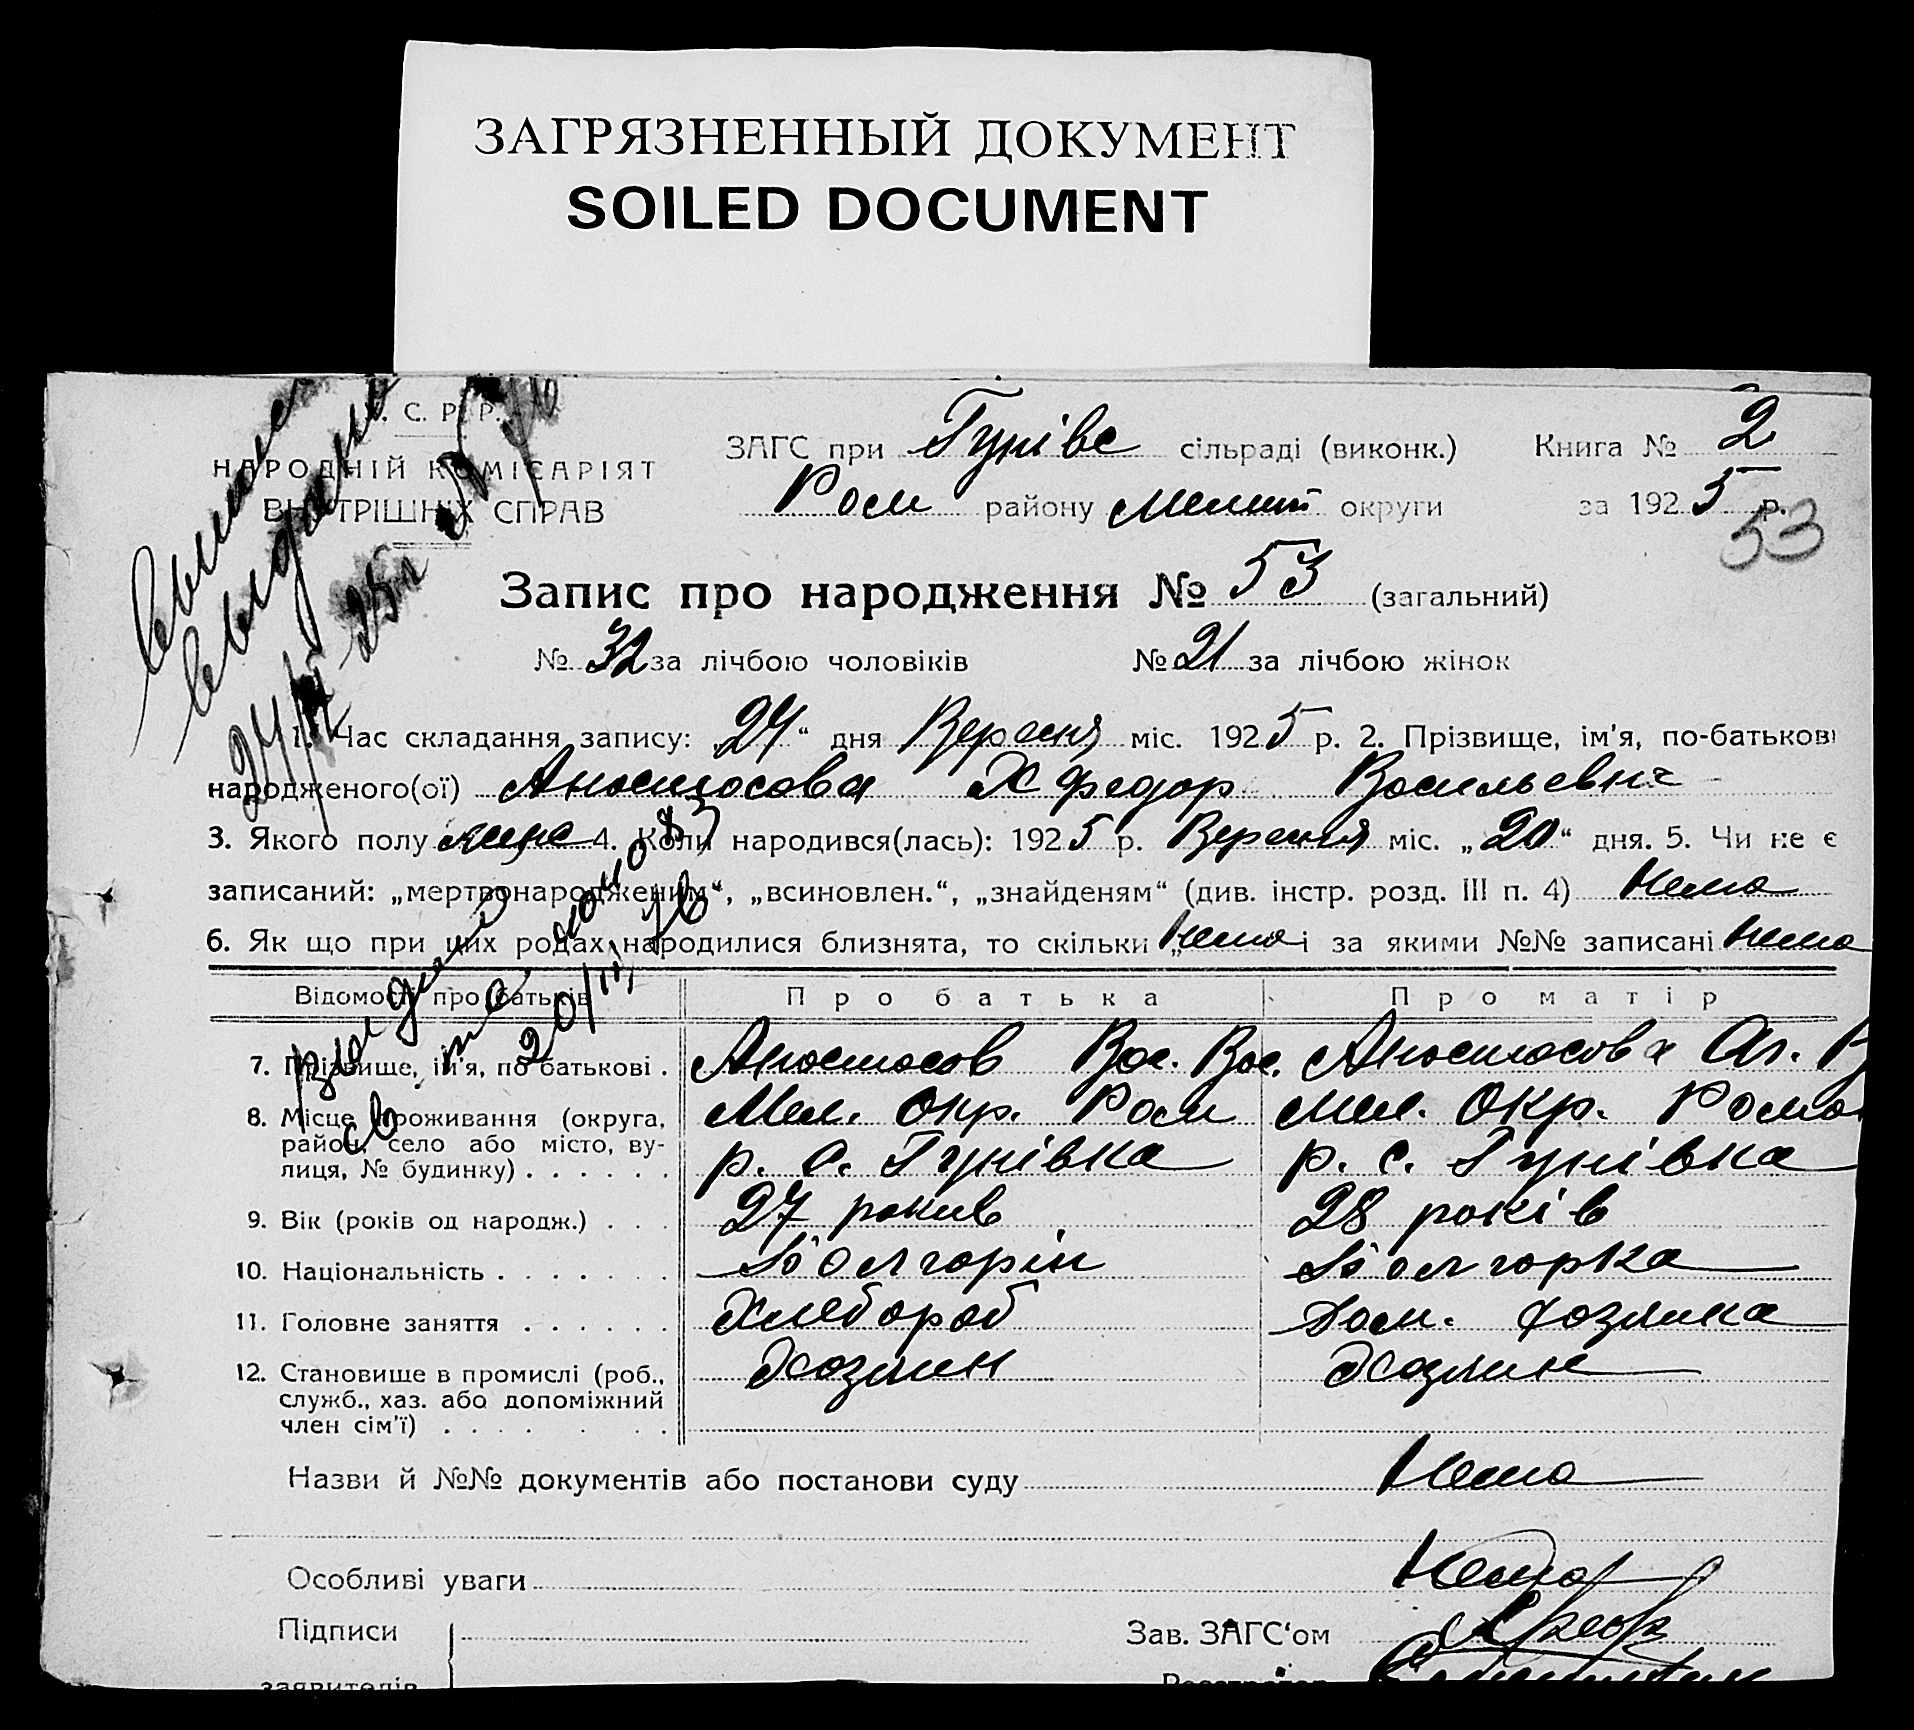 ЗАГРЯЗНЕННЫЙ ДОКУМЕНТ
SOILED DOCUMENT
С. Р. Р.
НАРОДНІЙ КОМІСАРІЯТ
ВНУТРІШНІХ СПРАВ
ЗАГС при Гунівс сільраді (виконк.) Книга № 2
Ром району Мелит округи за 1925 р.
53
Запис про народження № 53 (загальний)
№ 32 за лічбою чоловіків № 21 за лічбою жінок
1. Час складання запису: 24" дня Вересня міс. 1925 р. 2. Прізвище, ім'я, по-батькові
народженого(ої) Анастасова Х Федор Васильевич
3. Якого полу муже 4. Коли народився(лась): 1925 р. Вересня міс. „20" дня. 5. Чи не є
записаний: „мертвонародженим“, „всиновлен.“, „знайденям“ (див. інстр. розд. III п. 4) Нема
6. Як що при цих родах народилися близнята, то скільки Нема і за якими №№ записані Нема
Відомості про батьків Про батька Про матір
7. Прізвище, ім'я, по батькові . Анастасов Вас. Вас. Анастасова Ал.
8. Місце проживання (округа, Мел. Окр. Ром Мел. Окр. Рома
район, село або місто, ву-
лиця, № будинку) . . . . . . р. с. Гунівка р. с. Гунівка
9. Вік (років од народж.) . . . 27 рокив 28 років
10. Національність . . . . . . . Болгарін Болгарка
11. Головне заняття . . . . . . Хлебороб Дом. хозяика
12. Становище в промислі (роб., Хозяин Хозяин
служб., хаз. або допоміжний
член сім'ї) . . . . . . .
Назви й №№ документів або постанови суду Нема
Особливі уваги Нема
Підписи Зав. ЗАГС‘ом
заявителів Реєстратор